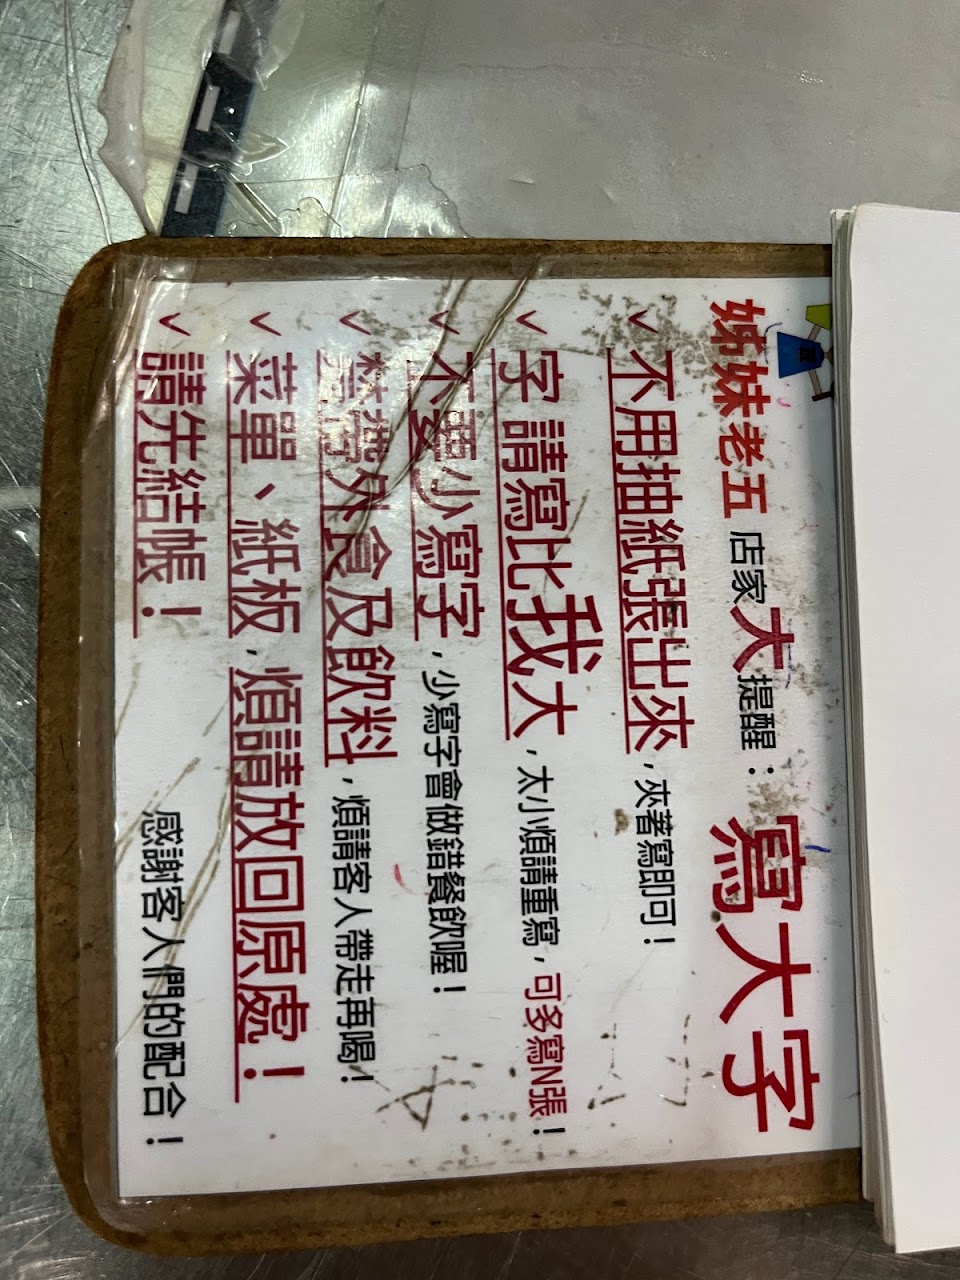 姊妹老五 店家大提醒： 寫大字
✓ 不用抽紙張出來，夾著寫即可！
✓ 字 請寫比我大，太小煩請重寫，可多寫N張！
✓ 不要小寫字，少寫字會做錯餐飲喔！
✓ 禁帶外食及飲料，煩請客人帶走再喝！
✓ 菜單、紙板，煩請放回原處！
✓ 請先結帳！
感謝客人們的配合！